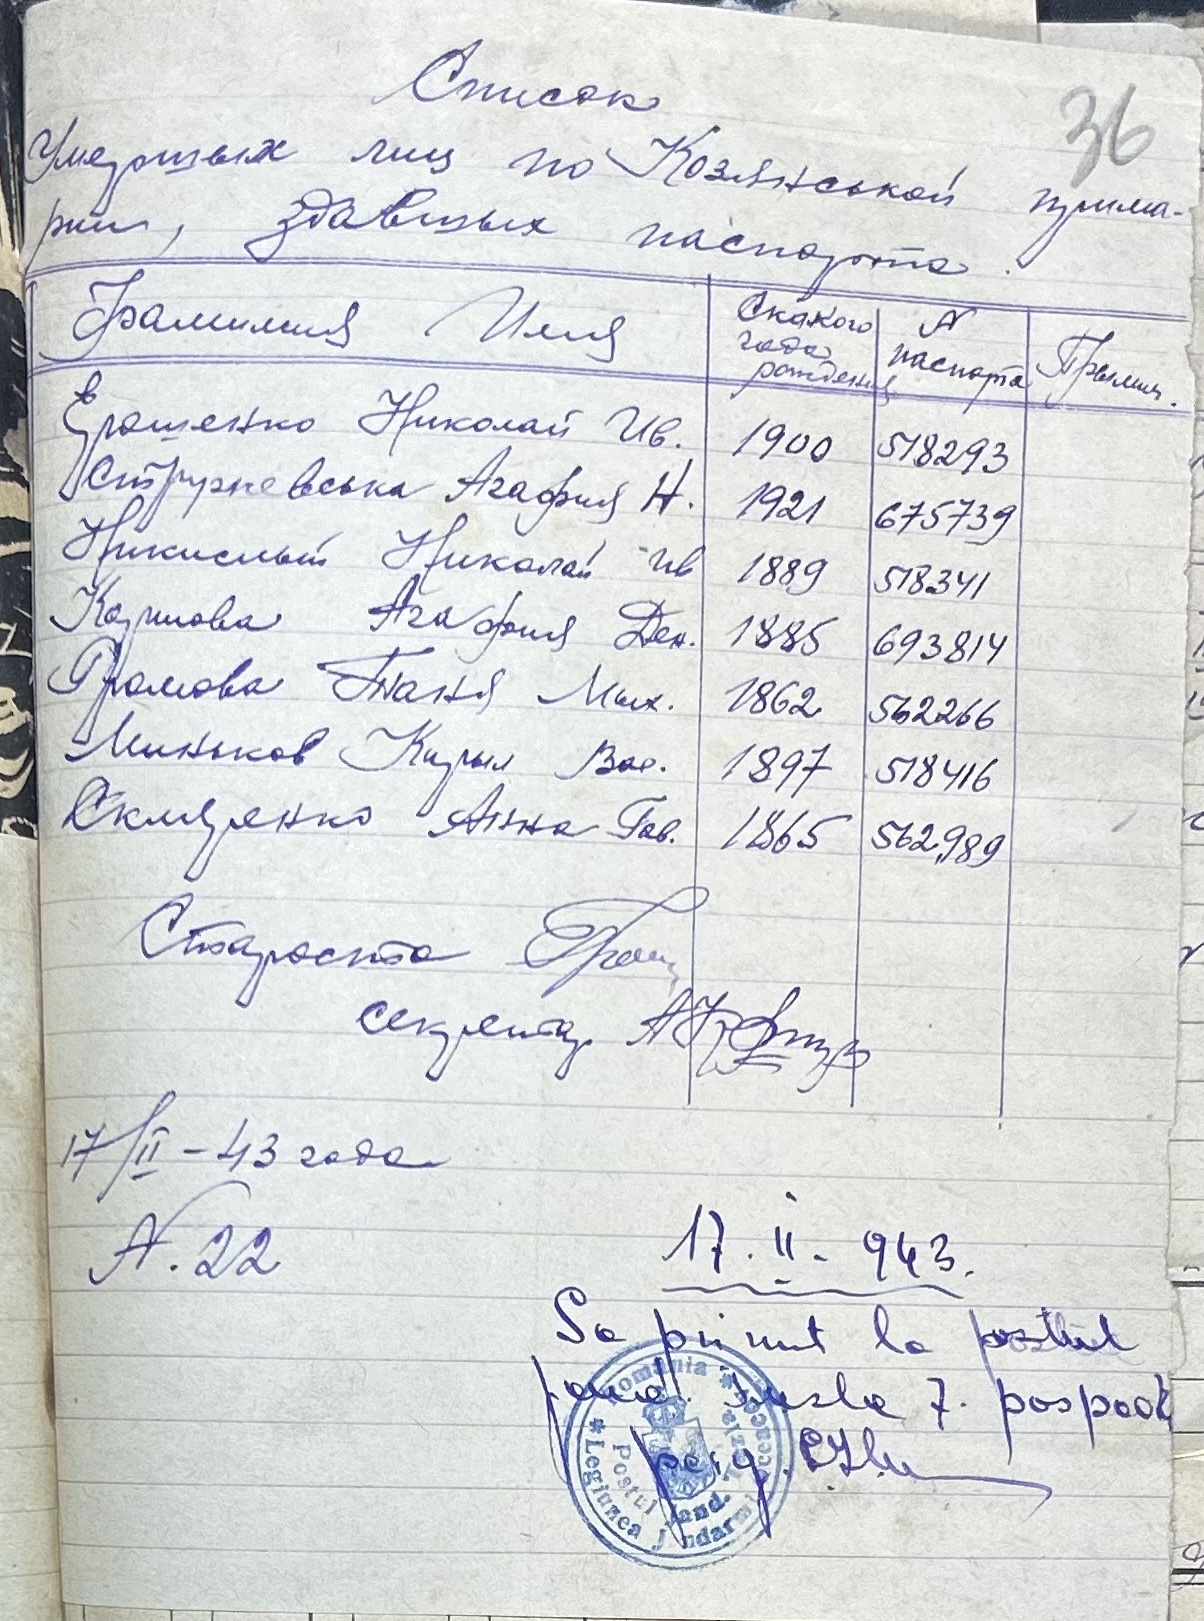 36
Список
Умерших лиц по Козлянськой прима-
рии, здавших паспорта.
Фамилия Имя | Скакого года рождения | N паспорта | Примич.
Ерошенко Николай Ив. 1900 518293
Стружевська Агафия Н. 1921 675739
Никислый Николай Ив 1889 518341
Карпова Агафия Дем. 1885 693814
Громова Таня Мих. 1862 562266
Миньков Кирил Вас. 1897 518416
Скляренко Анна Гав. 1865 562989
Староста
секретар
17/II – 43 года
N. 22
17. II. 943.
Sa primit la postul
jand. 7. pospoort
România
Postul Jand.
Legiunea Jandarmi